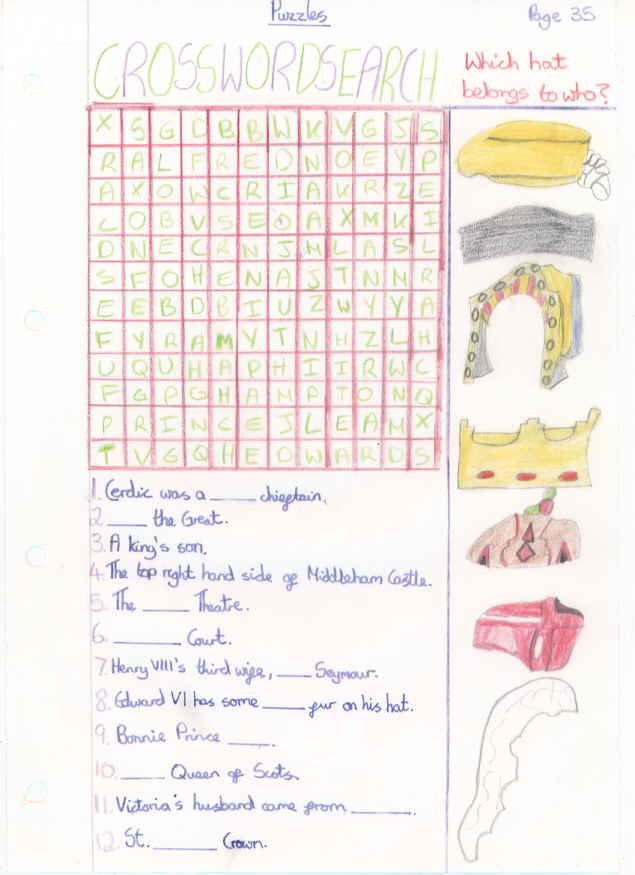 Puzzles
Page 35
CROSSWORDSEARCH
Which hat
belongs to who?
X S G D B B W K V G J S
R A L F R E D N O E Y P
A X O W C R I A K R Z E
C O B V S E O A X M K I
D N E C R N J M L A S L
S F O H E N A J T N N R
E E B D B I U Z W Y Y A
F Y R A M Y T N H Z L H
U Q U H A P H I I R W C
F G P G H A M P T O N Q
P R I N C E J L E A M X
T V G Q H E D W A R D S
1. Cerdic was a _____ chieftain.
2. ____ the Great.
3. A king's son.
4. The top right hand side of Middleham Castle.
5. The _____ Theatre.
6. _______ Court.
7. Henry VIII's third wife, ____ Seymour.
8. Edward VI has some _____ fur on his hat.
9. Bonnie Prince _____.
10. _____ Queen of Scots.
11. Victoria's husband came from ______.
12. St. _______ Crown.